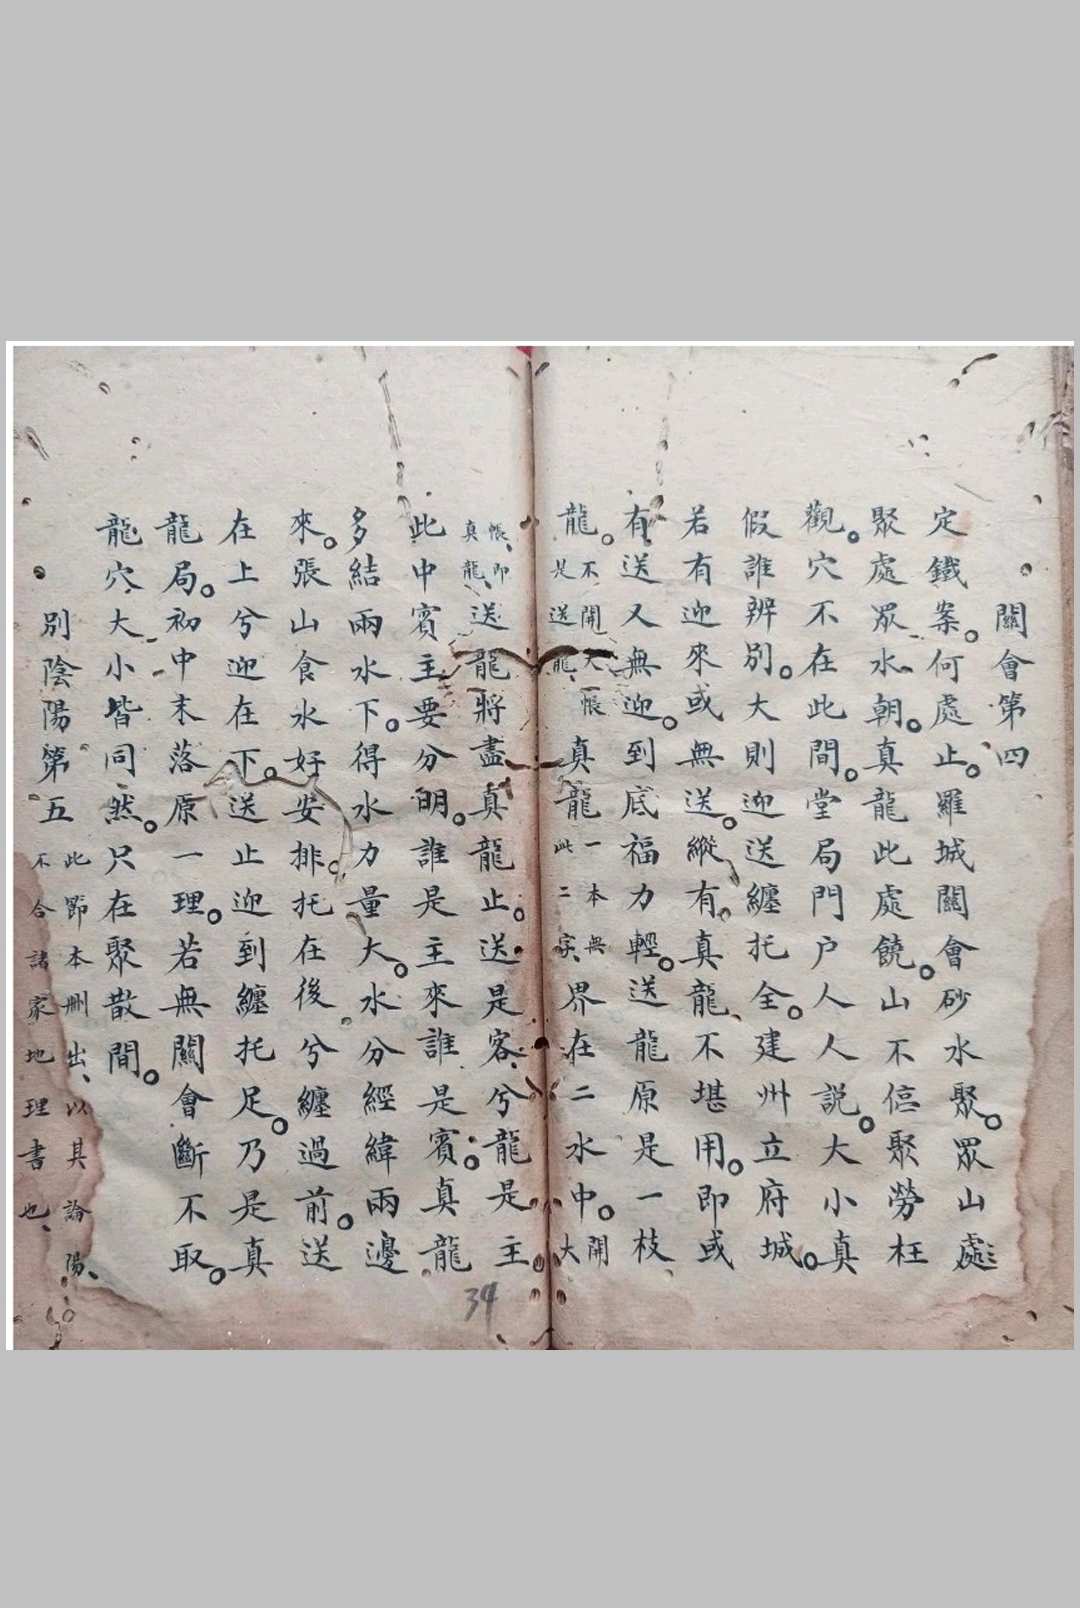 關會第四
定鐵案。何處止。羅城關會砂水聚。眾山處
聚處眾水朝。真龍此處饒。山不俖聚勞枉
觀。穴不在此間。堂局門户人人説。大小真
假誰辨別。大則迎送纏托全。建州立府城。
若有迎來或無送。縱有真龍不堪用。即或
有送又無迎。到底福力輕。送龍原是一枝
龍。不開大帳是送龍、真龍一本無此二字、界在二水中。開大
帳、即真龍、送龍將盡真龍止。送是客兮龍是主。
此中賓主要分明。誰是主來誰是賓。真龍
多結兩水下。得水力量大。水分經緯兩邊
來。張山食水好安排。托在後兮纏過前。送
在上兮迎在下。送止迎到纏托足。乃是真
龍局。初中末落原一理。若無關會斷不取。
龍穴大小皆同然。只在聚散間。
別陰陽第五 此節本刪出、以其論陽、不合諸家地理書也、
34